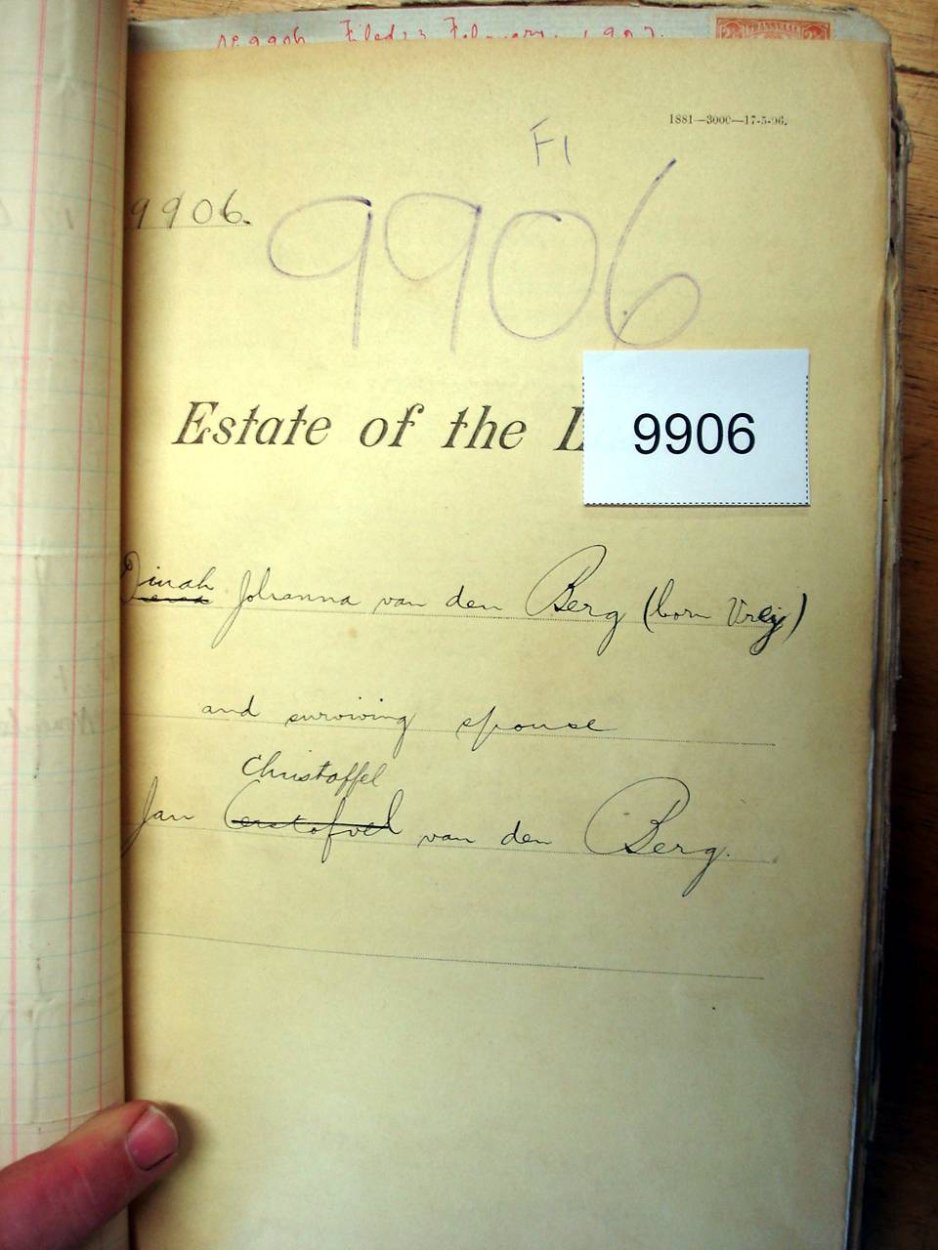 No 9906 Filed 23 February 1907.
TRANSVAAL
1881—3000—17-5-96.
F1
9906.
9906
Estate of the L
9906
Dinah
Johanna van den Berg (born Vreij)
and surviving spouse
Christoffel
Jan Cerstofvel van den Berg.